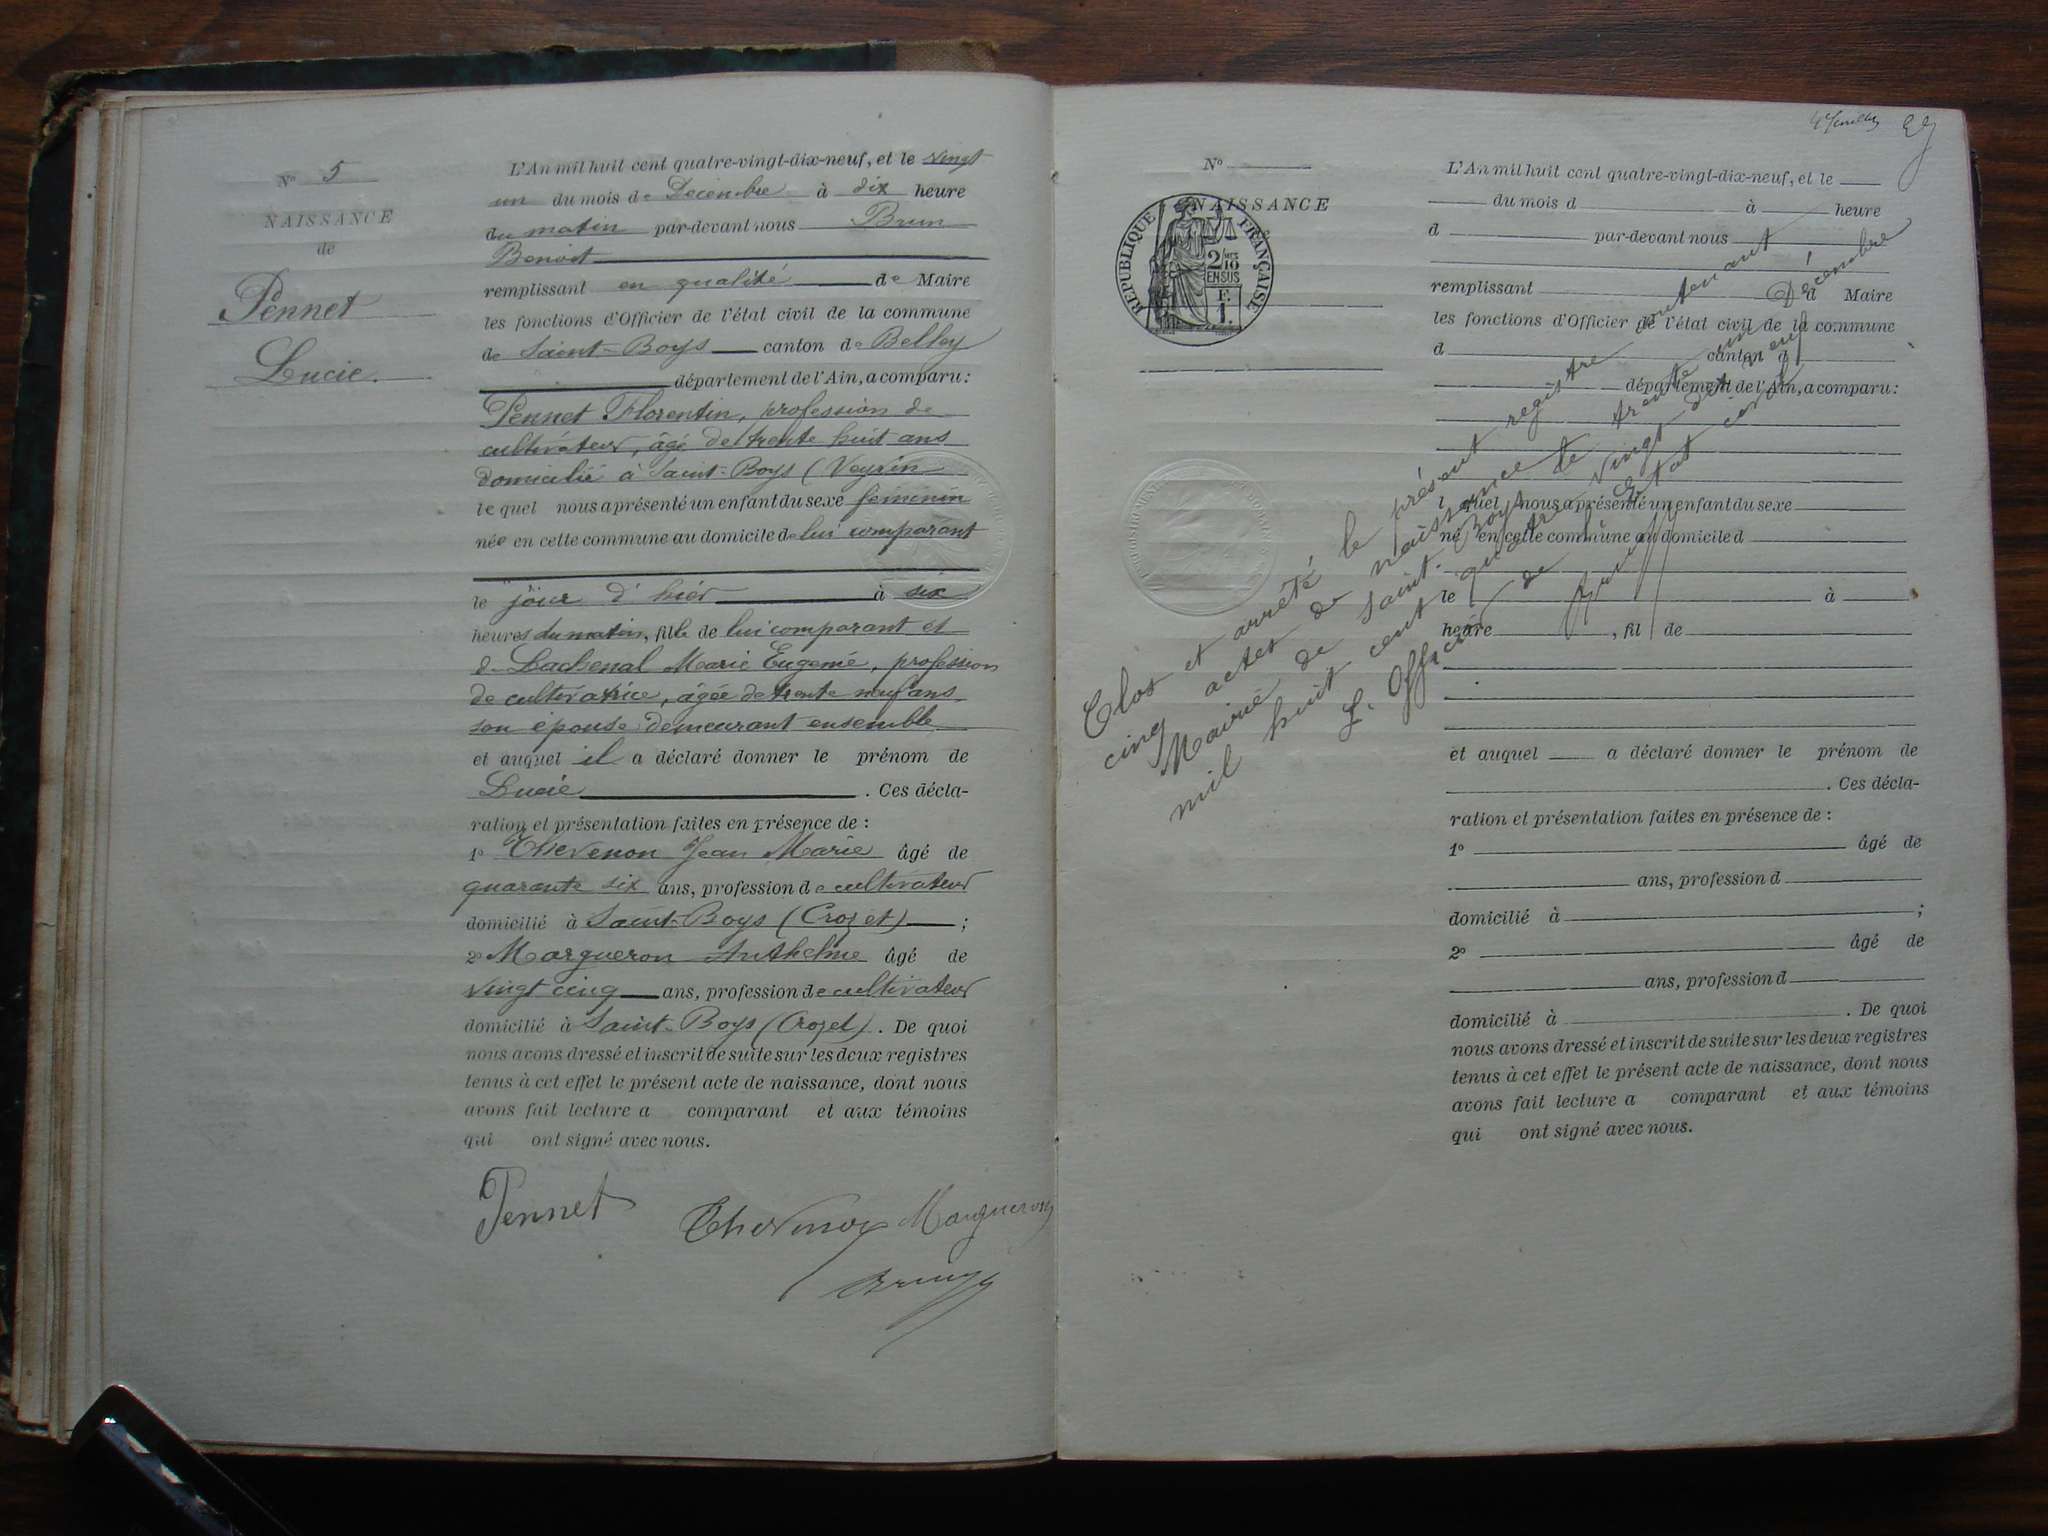 N° 5
NAISSANCE
de
Pennet
Lucie.
L'An mil huit cent quatre-vingt-dix-neuf, et le vingt
un du mois de Decembre à dix heure
du matin par-devant nous Brun
Benoit
remplissant en qualité de Maire
les fonctions d'Officier de l'état civil de la commune
de Saint-Boys canton de Belley
département de l'Ain, a comparu :
Pennet Florentin, profession de
cultivateur, âgé de trente huit ans
domicilié à Saint-Boys (Veyrin
le quel nous a présenté un enfant du sexe féminin
née en cette commune au domicile de lui comparant
le jour d'hier à six
heures du matin, fille de lui comparant et
de Lachenal Marie Eugenie, profession
de cultivatrice, âgée de trente neuf ans,
son épouse demeurant ensemble
et auquel il a déclaré donner le prénom de
Lucie . Ces décla-
ration et présentation faites en présence de :
1° Thevenon Jean Marie âgé de
quarante six ans, profession de cultivateur
domicilié à Saint-Boys (Crozet) ;
2° Margueron Anthelme âgé de
vingt cinq ans, profession de cultivateur
domicilié à Saint-Boys (Crozet). De quoi
nous avons dressé et inscrit de suite sur les deux registres
tenus à cet effet le présent acte de naissance, dont nous
avons fait lecture a comparant et aux témoins
qui ont signé avec nous.
Pennet Thevenon Margueron
Brun
N°
NAISSANCE
RÉPUBLIQUE FRANÇAISE
2/10
EN SUS
F.
1.
L'An mil huit cent quatre-vingt-dix-neuf, et le
du mois d à heure
d par-devant nous
remplissant d Maire
les fonctions d'Officier de l'état civil de la commune
d canton d
département de l'Ain, a comparu :
l quel nous a présenté un enfant du sexe
né en cette commune au domicile d
le à
heure , fil de
et auquel a déclaré donner le prénom de
. Ces décla-
ration et présentation faites en présence de :
1° âgé de
ans, profession d
domicilié à ;
2° âgé de
ans, profession d
domicilié à . De quoi
nous avons dressé et inscrit de suite sur les deux registres
tenus à cet effet le présent acte de naissance, dont nous
avons fait lecture a comparant et aux témoins
qui ont signé avec nous.
Clos et arrêté le présent registre contenant
cinq actes de naissance le trente un Décembre
Mairie de Saint-Boys
mil huit cent quatre vingt dix neuf
L'Officier de l'Etat civil
Brun